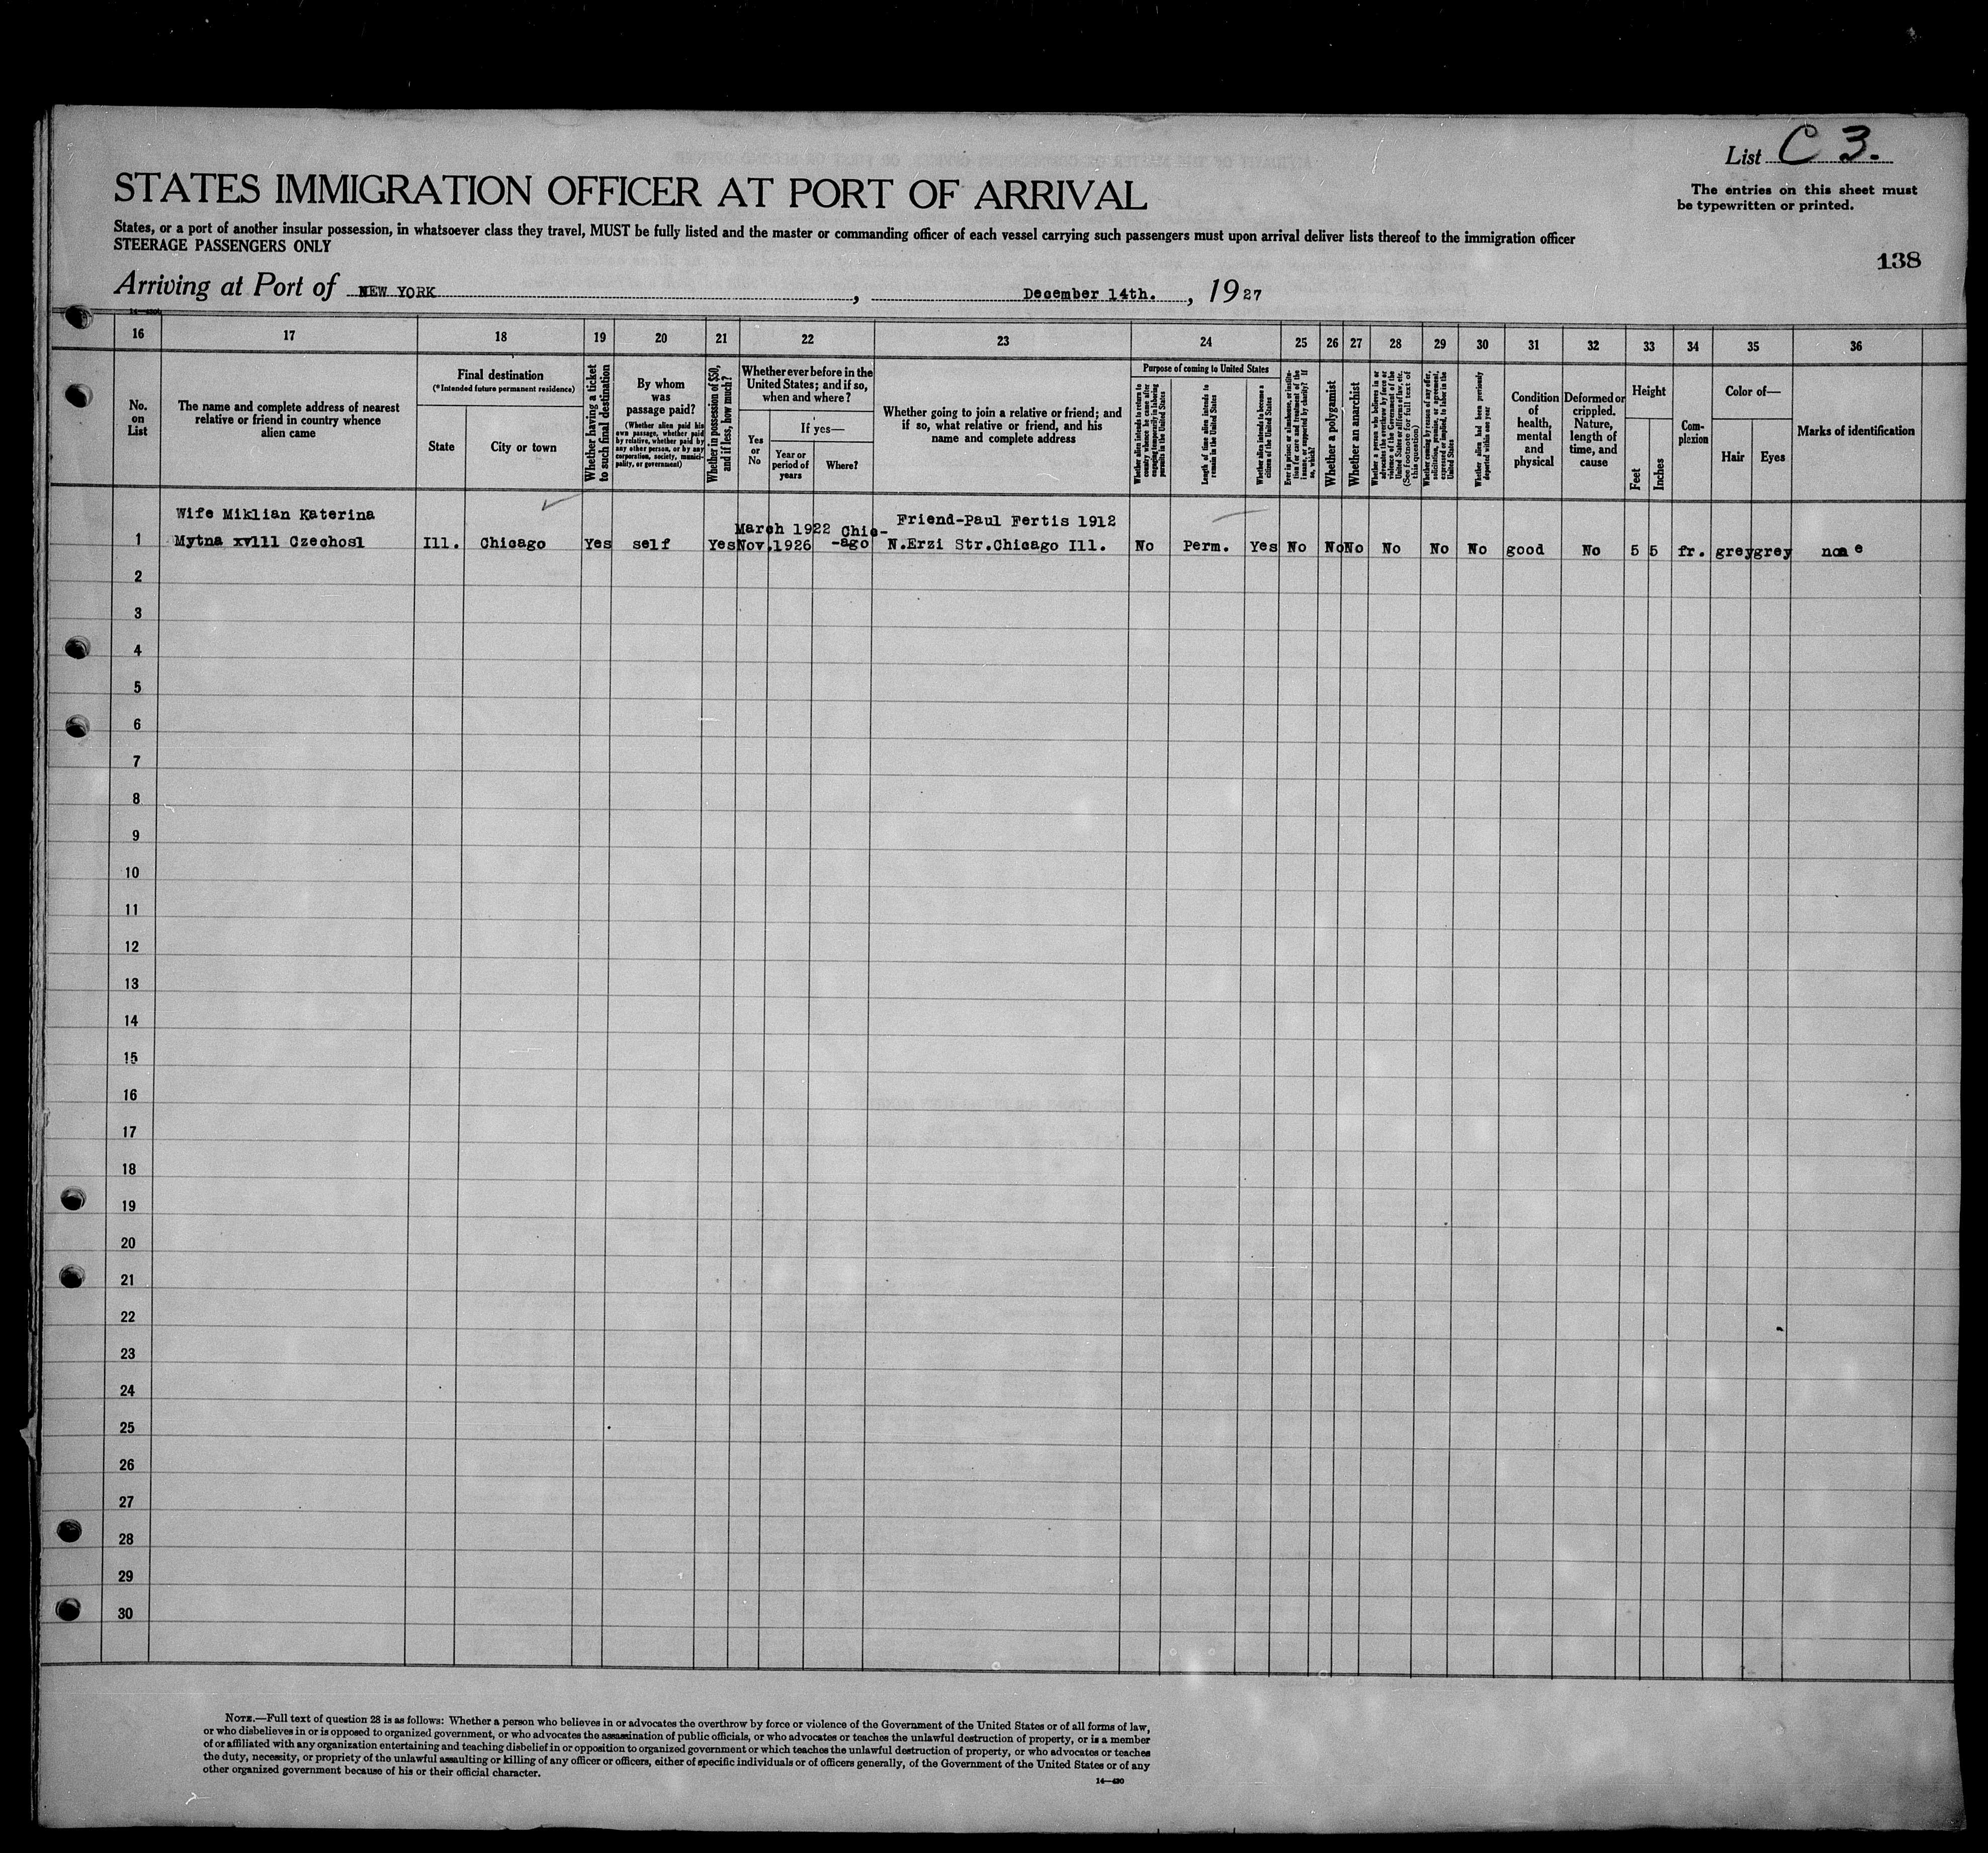 List C 3.
STATES IMMIGRATION OFFICER AT PORT OF ARRIVAL
The entries on this sheet must
be typewritten or printed.
States, or a port of another insular possession, in whatsoever class they travel, MUST be fully listed and the master or commanding officer of each vessel carrying such passengers must upon arrival deliver lists thereof to the immigration officer
STEERAGE PASSENGERS ONLY
138
Arriving at Port of NEW YORK, December 14th., 1927
16 17 18 19 20 21 22 23 24 25 26 27 28 29 30 31 32 33 34 35 36
No.
on
List
The name and complete address of nearest
relative or friend in country whence
alien came
Final destination
(*Intended future permanent residence)
State
City or town
Whether having a ticket
to such final destination
By whom
was
passage paid?
(Whether alien paid his
own passage, whether paid
by relative, whether paid by
any other person, or by any
corporation, society, munici-
pality, or government)
Whether in possession of $50,
and if less, how much?
Whether ever before in the
United States; and if so,
when and where?
Yes
or
No
If yes—
Year or
period of
years
Where?
Whether going to join a relative or friend; and
if so, what relative or friend, and his
name and complete address
Purpose of coming to United States
Whether alien intends to return to
country whence he came after
engaging temporarily in laboring
pursuits in the United States
Length of time alien intends to
remain in the United States
Whether alien intends to become a
citizen of the United States
Ever in prison or almshouse, or institu-
tion for care and treatment of the
insane, or supported by charity? If
so, which?
Whether a polygamist
Whether an anarchist
Whether a person who believes in or
advocates the overthrow by force or
violence of the Government of the
United States or all forms of law, etc.
(See footnote for full text of
this question)
Whether coming by reason of any offer,
solicitation, promise, or agreement,
expressed or implied, to labor in the
United States
Whether alien had been previously
deported within one year
Condition
of
health,
mental
and
physical
Deformed or
crippled.
Nature,
length of
time, and
cause
Height
Feet
Inches
Com-
plexion
Color of—
Hair
Eyes
Marks of identification
Wife Miklian Katerina March 1922 Chic- Friend-Paul Fertis 1912
1 Mytna xvlll Czechosl Ill. Chicago Yes self Yes Nov.1926 -ago N.Erzi Str.Chicago Ill. No Perm. Yes No No No No No No good No 5 5 fr. grey grey none
2
3
4
5
6
7
8
9
10
11
12
13
14
15
16
17
18
19
20
21
22
23
24
25
26
27
28
29
30
NOTE.—Full text of question 28 is as follows: Whether a person who believes in or advocates the overthrow by force or violence of the Government of the United States or of all forms of law,
or who disbelieves in or is opposed to organized government, or who advocates the assassination of public officials, or who advocates or teaches the unlawful destruction of property, or is a member
of or affiliated with any organization entertaining and teaching disbelief in or opposition to organized government or which teaches the unlawful destruction of property, or who advocates or teaches
the duty, necessity, or propriety of the unlawful assaulting or killing of any officer or officers, either of specific individuals or of officers generally, of the Government of the United States or of any
other organized government because of his or their official character.
14—430